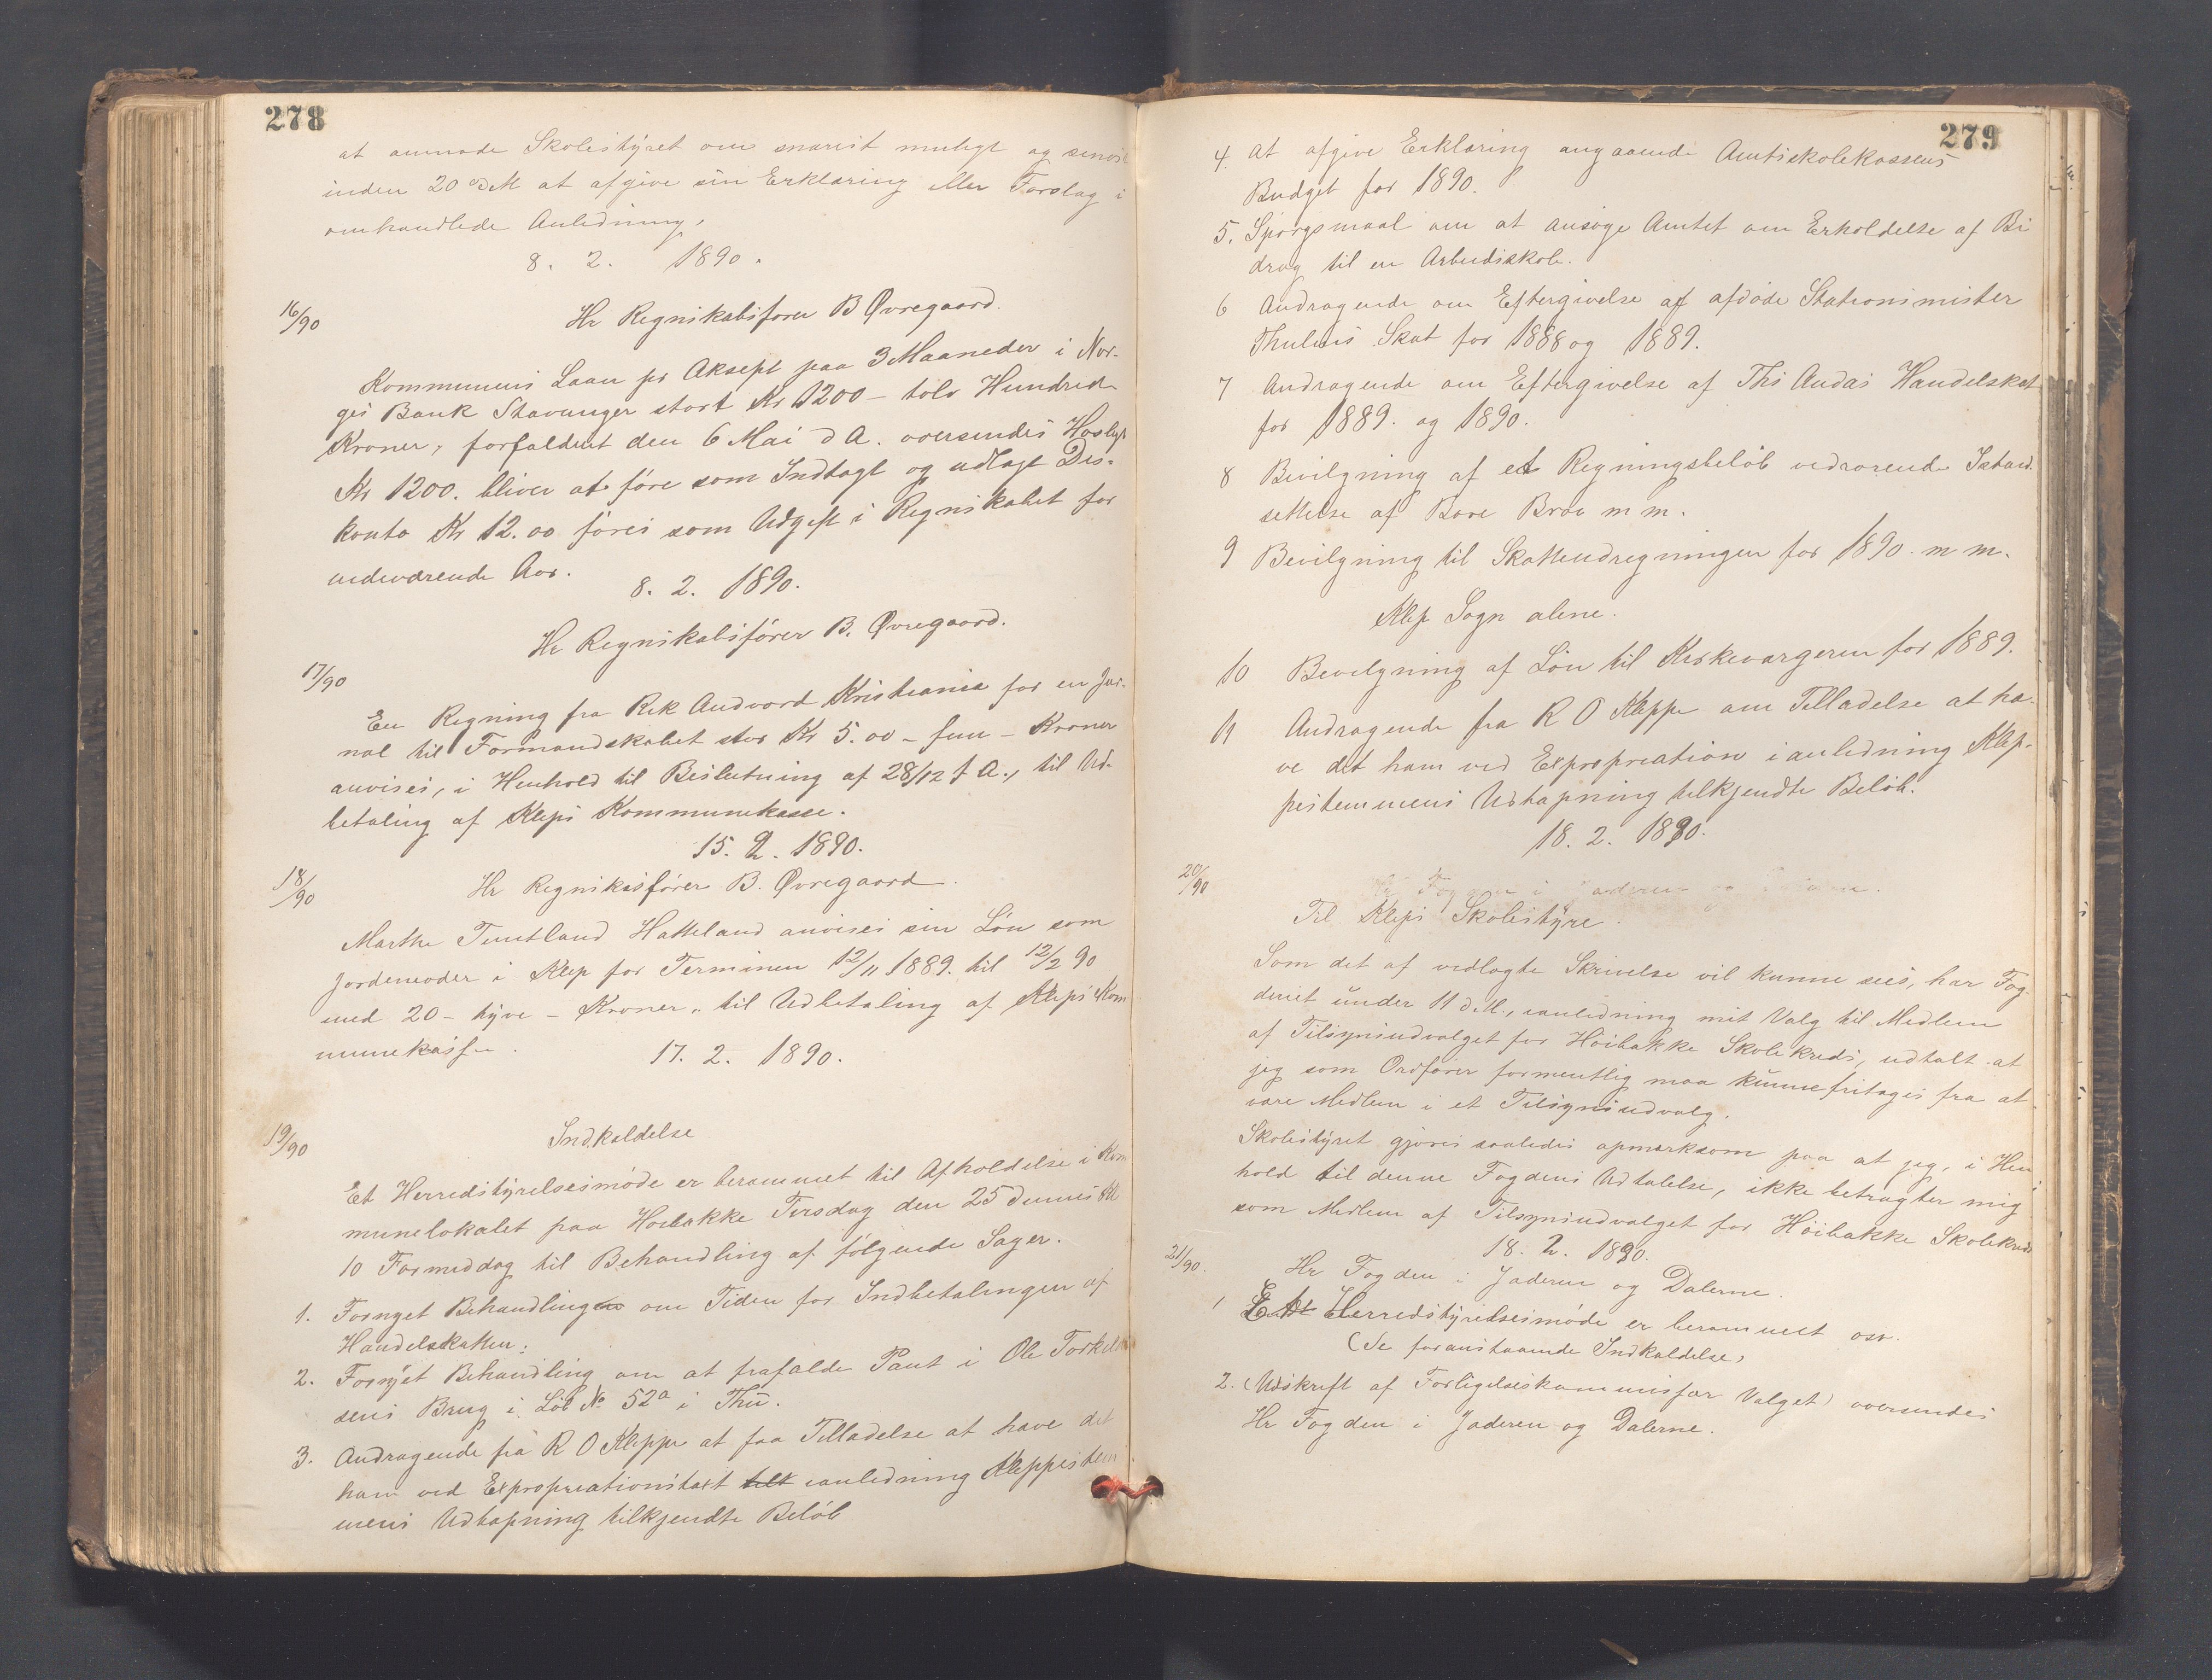 278
at anmode Skolestyret om snarest muligt og senest
inden 20 d M at afgive sin Erklæring eller Forslag i
omhandlede Anledning,
8. 2. 1890.
16/90
Hr Regnskabsfører B Øvregaard.
Kommunens Laan pr Aksept paa 3 Maaneder i Nor-
ges Bank Stavanger stort Kr 1200 – tolv Hundred
Kroner, forfaldent den 6 Mai d A. oversendes Hoslagt
Kr 1200. bliver at føre som Indtægt og udlagt Dis-
konto Kr 12.00 føres som Udgift i Regnskabet for
indeværende Aar.
8. 2. 1890.
Hr Regnskabsfører B. Øvregaard.
17/90
En Regning fra Rik Andvord Kristiania for en Jur-
nal til Formandskabet stor Kr 5.00 – fem – Kroner
anvises, i Henhold til Beslutning af 28/12 f A., til Ud-
betaling af Kleps Kommunekasse.
15. 2. 1890.
18/90
Hr Regnskasfører B. Øvregaard.
Marthe Tuntland Hatteland anvises sin Løn som
Jordemoder i Klep for Terminen 12/11 1889. til 12/2 90
med 20 – tyve – Kroner, til Udbetaling af Kleps Kom
munekasse.
17. 2. 1890.
19/90
Indkaldelse
Et Herredstyrelsesmøde er berammet til Afholdelse i Kom
munelokalet paa Høibakke Tirsdag den 25 dennes Kl
10 Formiddag til Behandling af følgende Sager.
1. Fornyet Behandlingen om Tiden for Indbetalingen af
Handelskatten.
2. Fornyet Behandling om at frafalde Pant i Ole Torkild
sens Brug i Løb No 52a i Thu.
3. Andragende fra R O Kleppe at faa Tilladelse at have det
ham ved Expropriationstaxt till ianledning Kleppestem
mens Udtapning tilkjendte Beløb
279
4. At afgive Erklæring angaaende Amtsskolekassens
Budget for 1890.
5. Spørgsmaal om at ansøge Amtet om Erholdelse af Bi
drag til en Arbeidsskole.
6 Andragende om Eftergivelse af afdøde Stationsmister
Thulins Skat for 1888 og 1889.
7 Andragende om Eftergivelse af Ths Andas Handelskat
for 1889. og 1890.
8 Bevilgning af et Regningsbeløb vedrørende Istand
settelse af Bore Broe m m.
9 Bevilgning til Skatteudregningen for 1890. m m.
Klep Sogn alene.
10 Bevilgning af Løn til Kirkevergeren for 1889.
11 Andragende fra R O Kleppe om Tilladelse at ha-
ve det ham ved Expropriation ianledning Klep-
pestemmens Udtapning tilkjendte Beløb.
18. 2. 1890.
20/90
Til Kleps Skolestyre.
Som det af vedlagte Skrivelse vil kunne sees, har Fog
deriet under 11 d M., ianledning mit Valg til Medlem
af Tilsynsudvalget for Høibakke Skolekreds, udtalt at
jeg som Ordfører formentlig maa kunne fritages fra at
være Medlem i et Tilsynsudvalg.
Skolestyret gjøres saaledes opmerksom paa at jeg, i Hen
hold til denne Fogdens Udtalelse, ikke betragter mig
som Medlem af Tilsynsudvalget for Høibakke Skolekreds
18. 2. 1890.
21/90.
Hr Fogden i Jæderen og Dalerne.
1 Et Herredstyrelsesmøde er berammet osv.
(Se foranstaaende Indkaldelse)
2. (Udskrift af Forligelseskommissær Valget) oversendes
Hr Fogden i Jæderen og Dalerne.